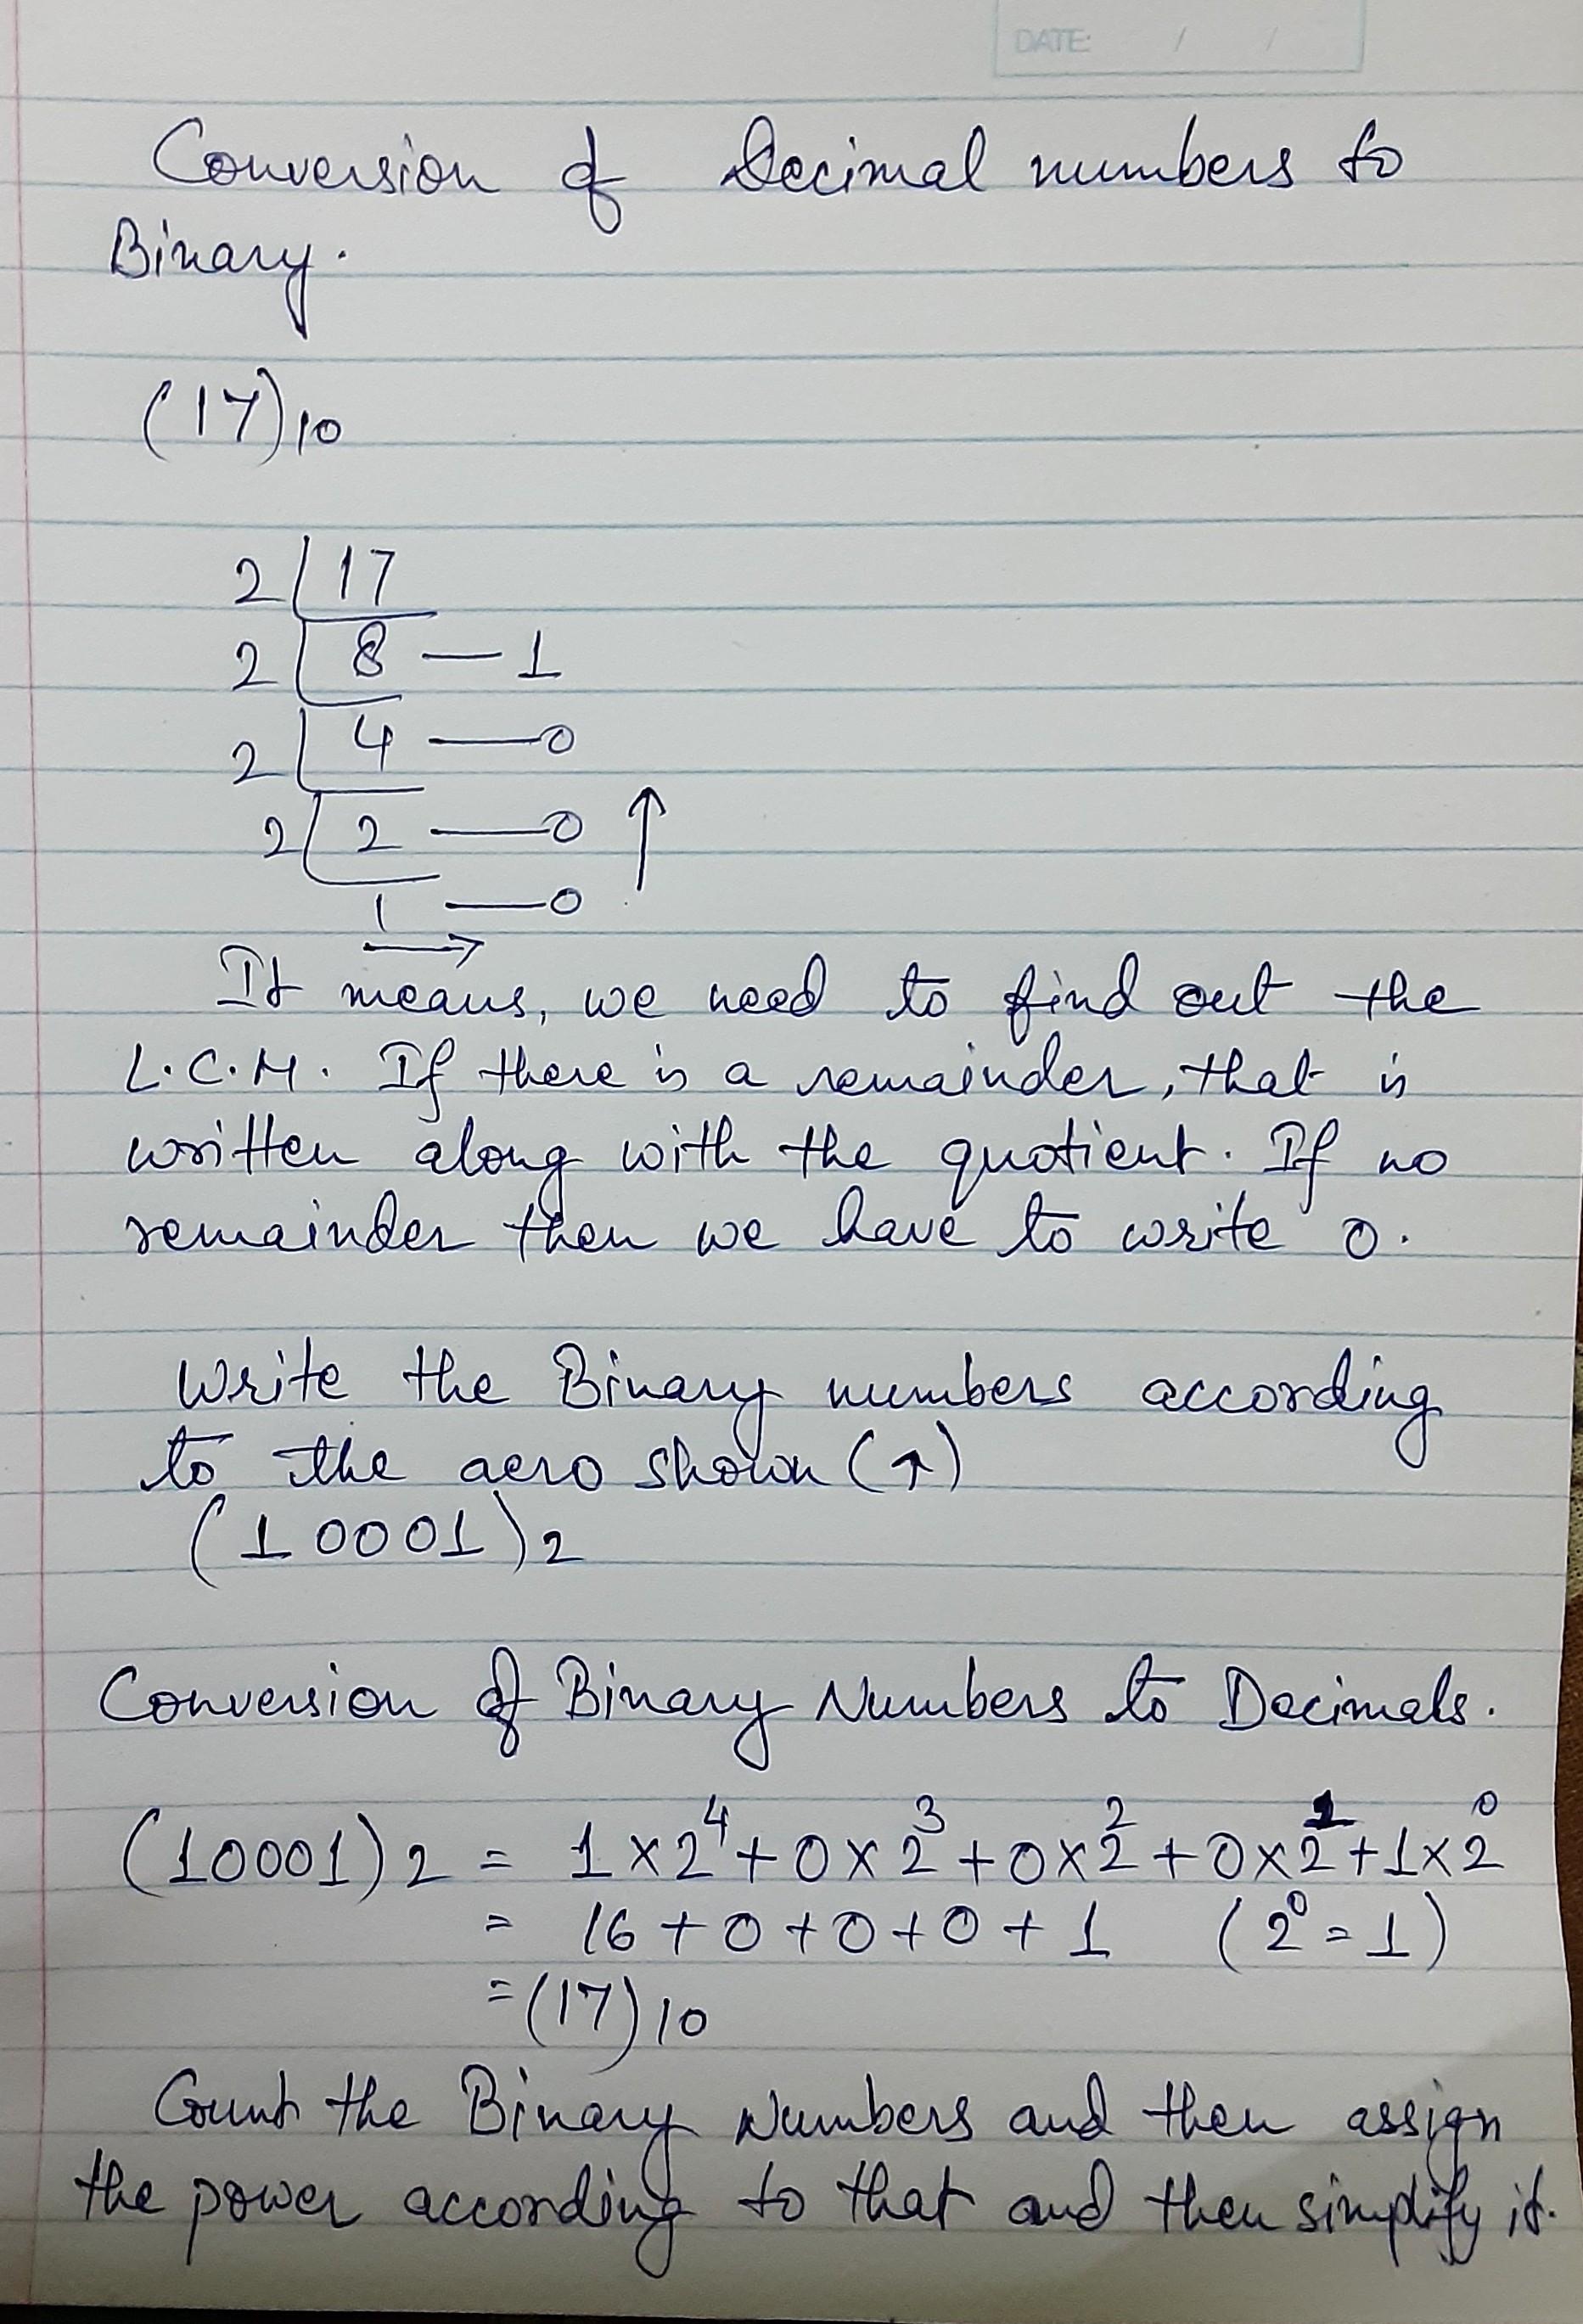 DATE: / /
Conversion of Decimal numbers to
Binary.
(17)10
2 | 17
2 | 8 — 1
2 | 4 — 0
2 | 2 — 0 ↑
1 — 0
→
It means, we need to find out the
L.C.M. If there is a remainder, that is
written along with the quotient. If no
remainder then we have to write 0.
Write the Binary numbers according
to the aero shown (↑)
(10001)2
Conversion of Binary Numbers to Decimals.
(10001)2 = 1×2⁴+0×2³+0×2²+0×2¹+1×2⁰
= 16+0+0+0+1 (2⁰=1)
=(17)10
Count the Binary Numbers and then assign
the power according to that and then simplify it.